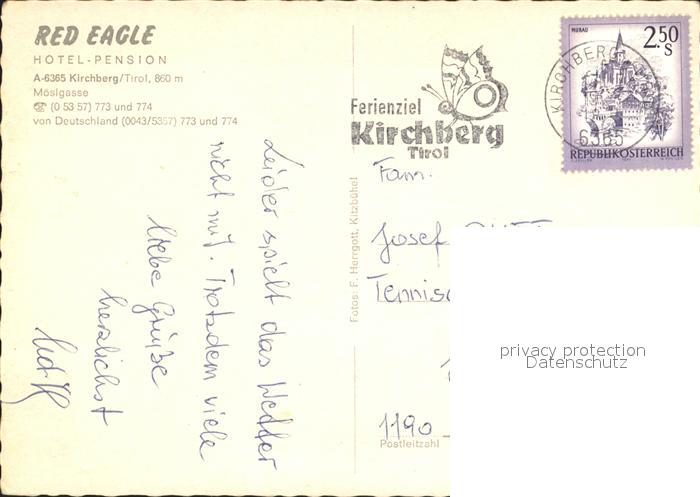 RED EAGLE
HOTEL-PENSION
A-6365 Kirchberg/Tirol, 860 m
Möslgasse
☎ (0 53 57) 773 und 774
von Deutschland (0043/5357) 773 und 774
Leider spielt das Wetter
nicht mit. Trotzdem viele
liebe Grüße
herzlichst
Fotos: F. Herrgott, Kitzbühel
Ferienziel
Kirchberg
Tirol
MURAU
2.50
S
REPUBLIK ÖSTERREICH
KIRCHBERG
6365
Fam.
Josef
1190
Postleitzahl
privacy protection
Datenschutz